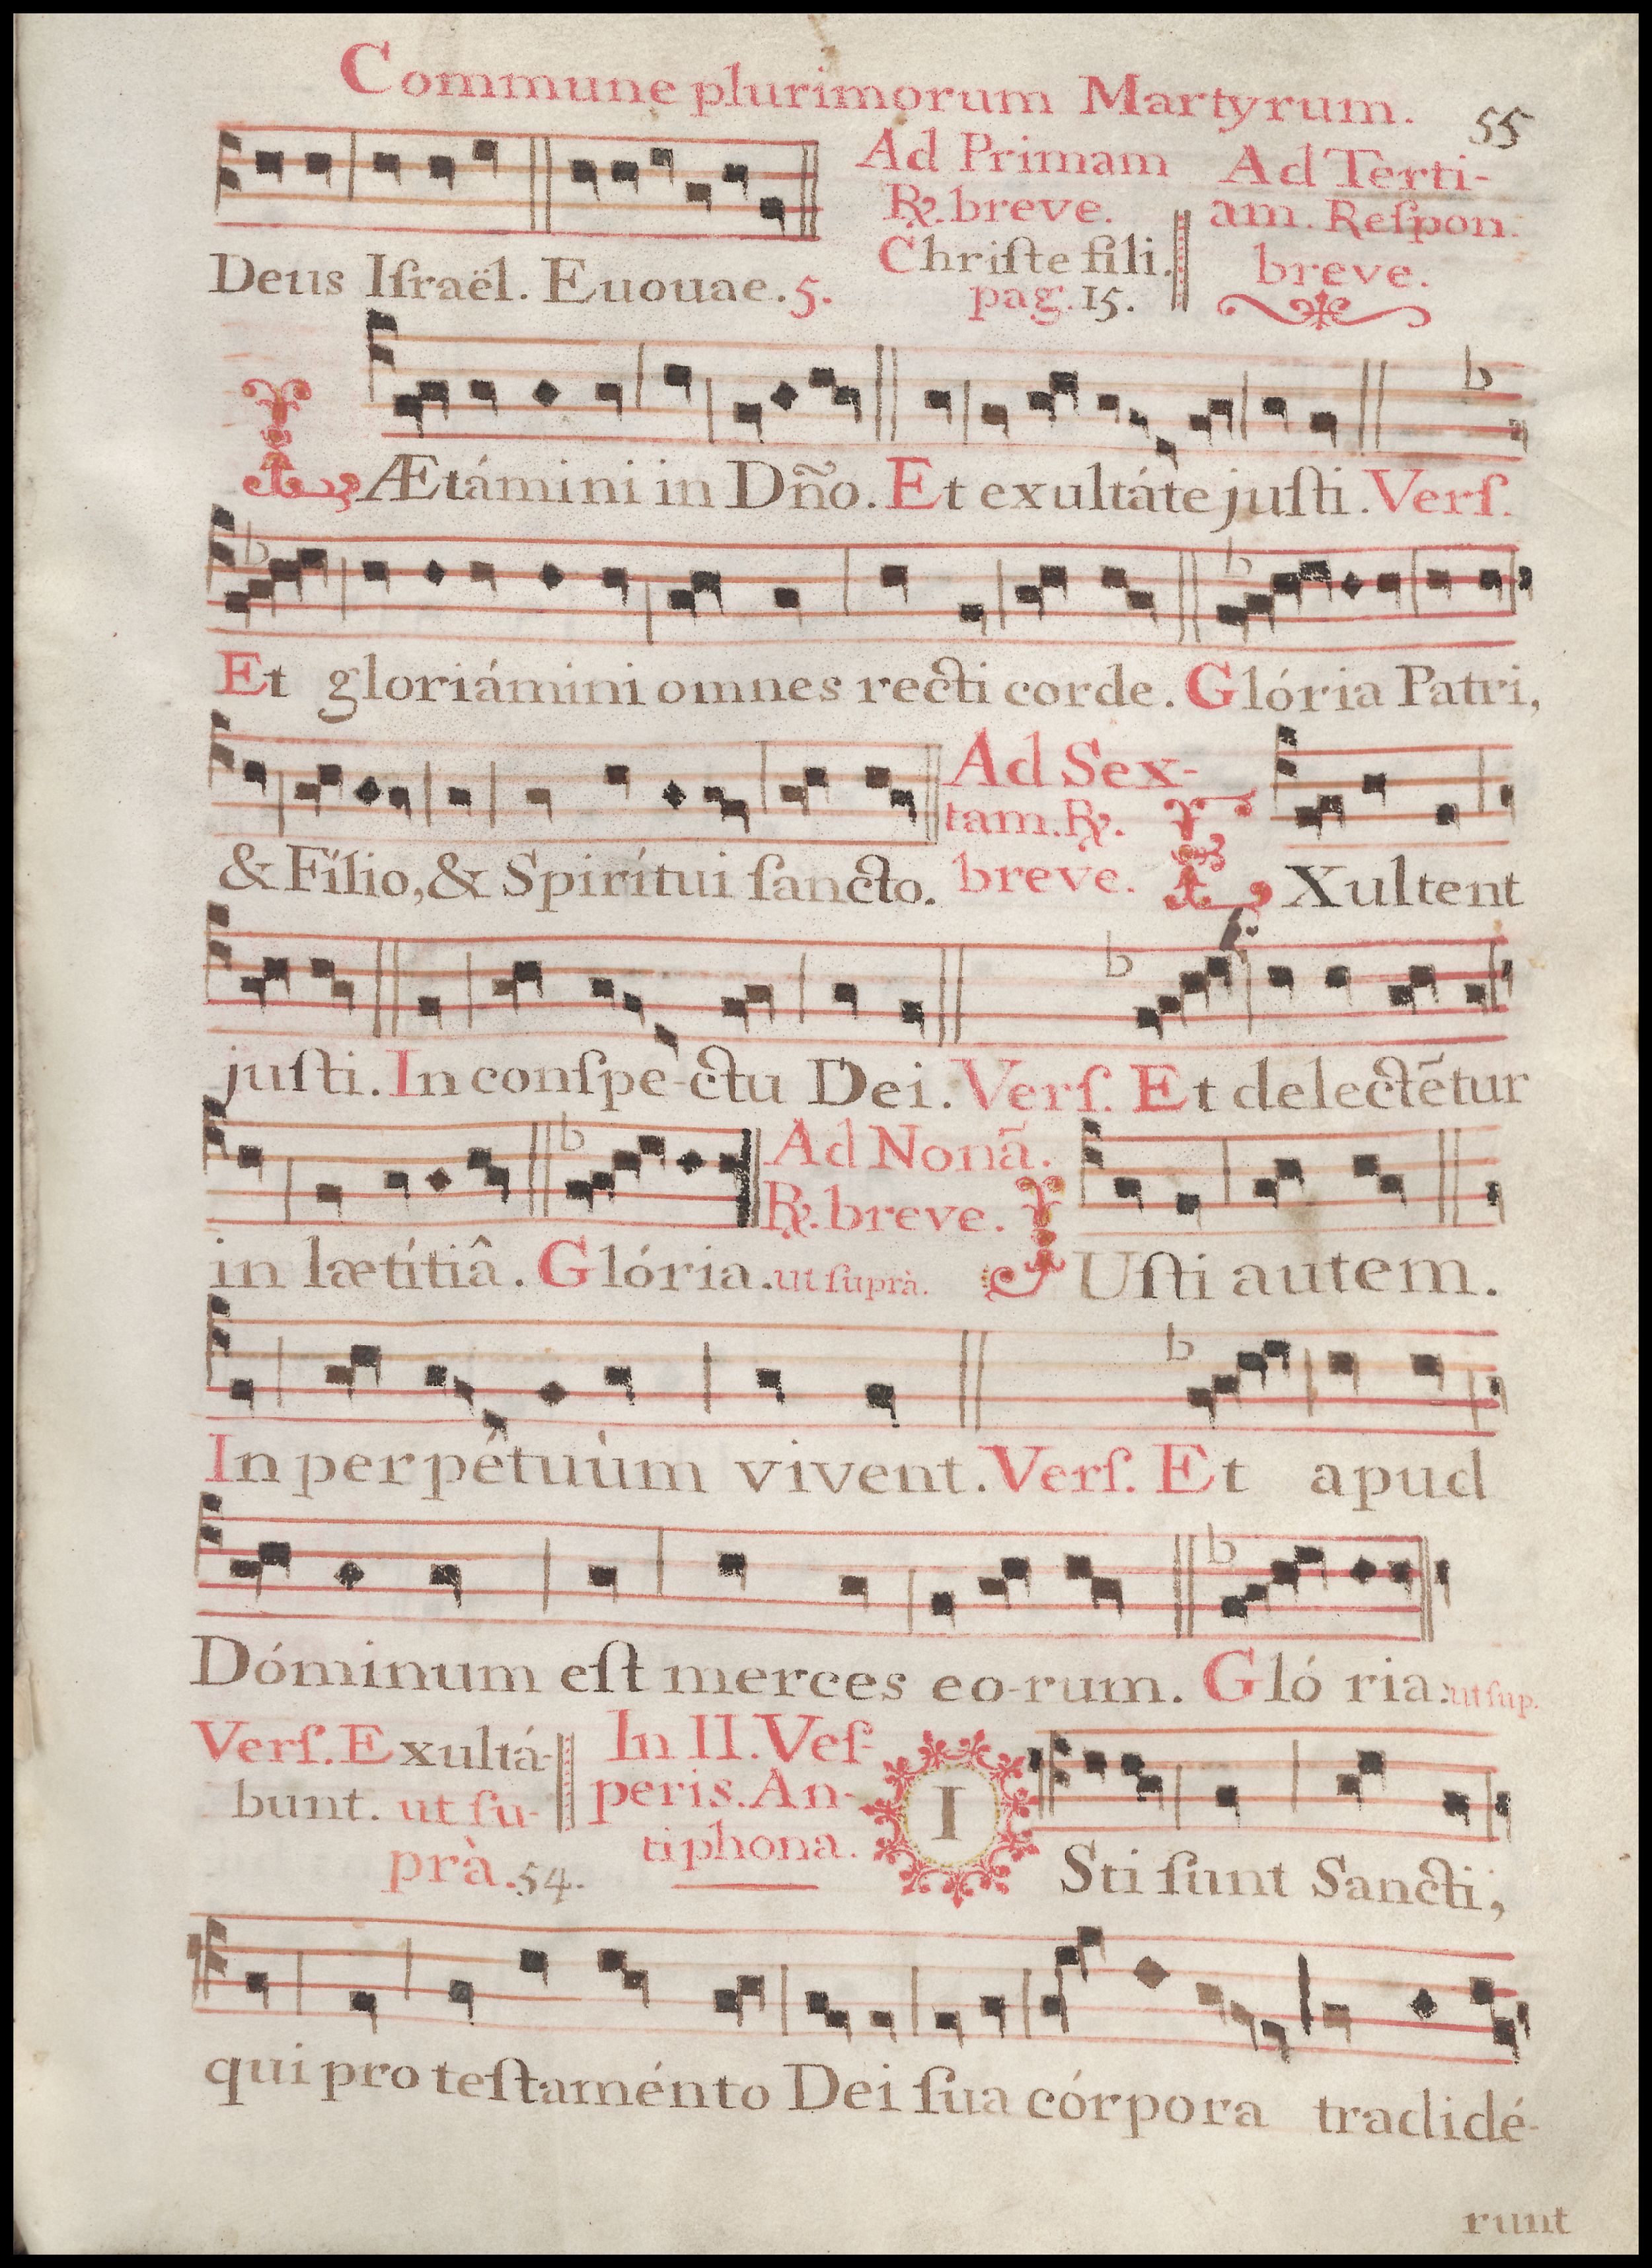 Commune plurimorum Martyrum.
55
Deus Iſraël. Euouae. 5.
Ad Primam
℟. breve.
Chriſte fili.
pag. 15.
Ad Terti-
am. Reſpon.
breve.
LÆtámini in Dño. Et exultáte juſti. Verſ.
Et gloriámini omnes recti corde. Glória Patri,
& Fílio, & Spirítui ſancto.
Ad Sex-
tam. ℟.
breve.
EXultent
juſti. In conſpe-ctu Dei. Verſ. Et delectẽtur
in lætítiâ. Glória. ut ſuprà.
Ad Nonã.
℟. breve.
JUſti autem.
In perpétuùm vivent. Verſ. Et apud
Dóminum eſt merces eo-rum. Gló ria. ut ſup.
Verſ. Exultá-
bunt. ut ſu-
prà. 54.
In II. Veſ-
peris. An-
tiphona.
ISti ſunt Sancti,
qui pro teſtaménto Dei ſua córpora tradidé-
runt